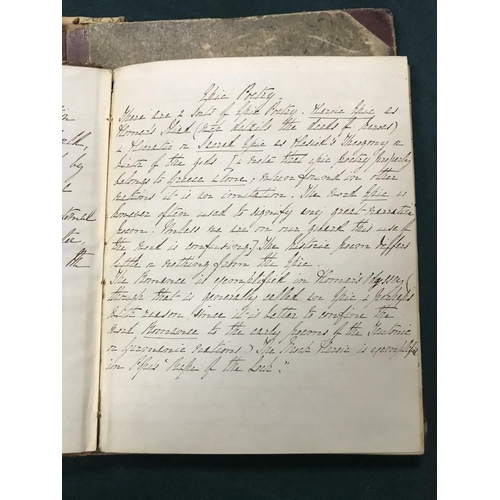 Epic Poetry.
There are 2 Sorts of Epic Poetry. Heroic Epic as
Homer's Iliad (which details the deeds of heroes)
or Sacred Epic as Hesiod's Theogony or
birth of the gods. I note that epic poetry properly
belongs to Greece alone, when found in other
nations it is an imitation. The word Epic is
however often used to signify any great narrative
poem. Unless we are on our guard this use of
the word is confusing. The historic poem differs
little or nothing from the Epic.
The Romance is exemplified in Homer's Odyssey (
though that is generally called an Epic & perhaps
with reason since it is better to confine the
word Romance to the early poems of the Teutonic
or nations) The Mock Heroic is exemplified
in Pope's "Rape of the Lock."
in
by